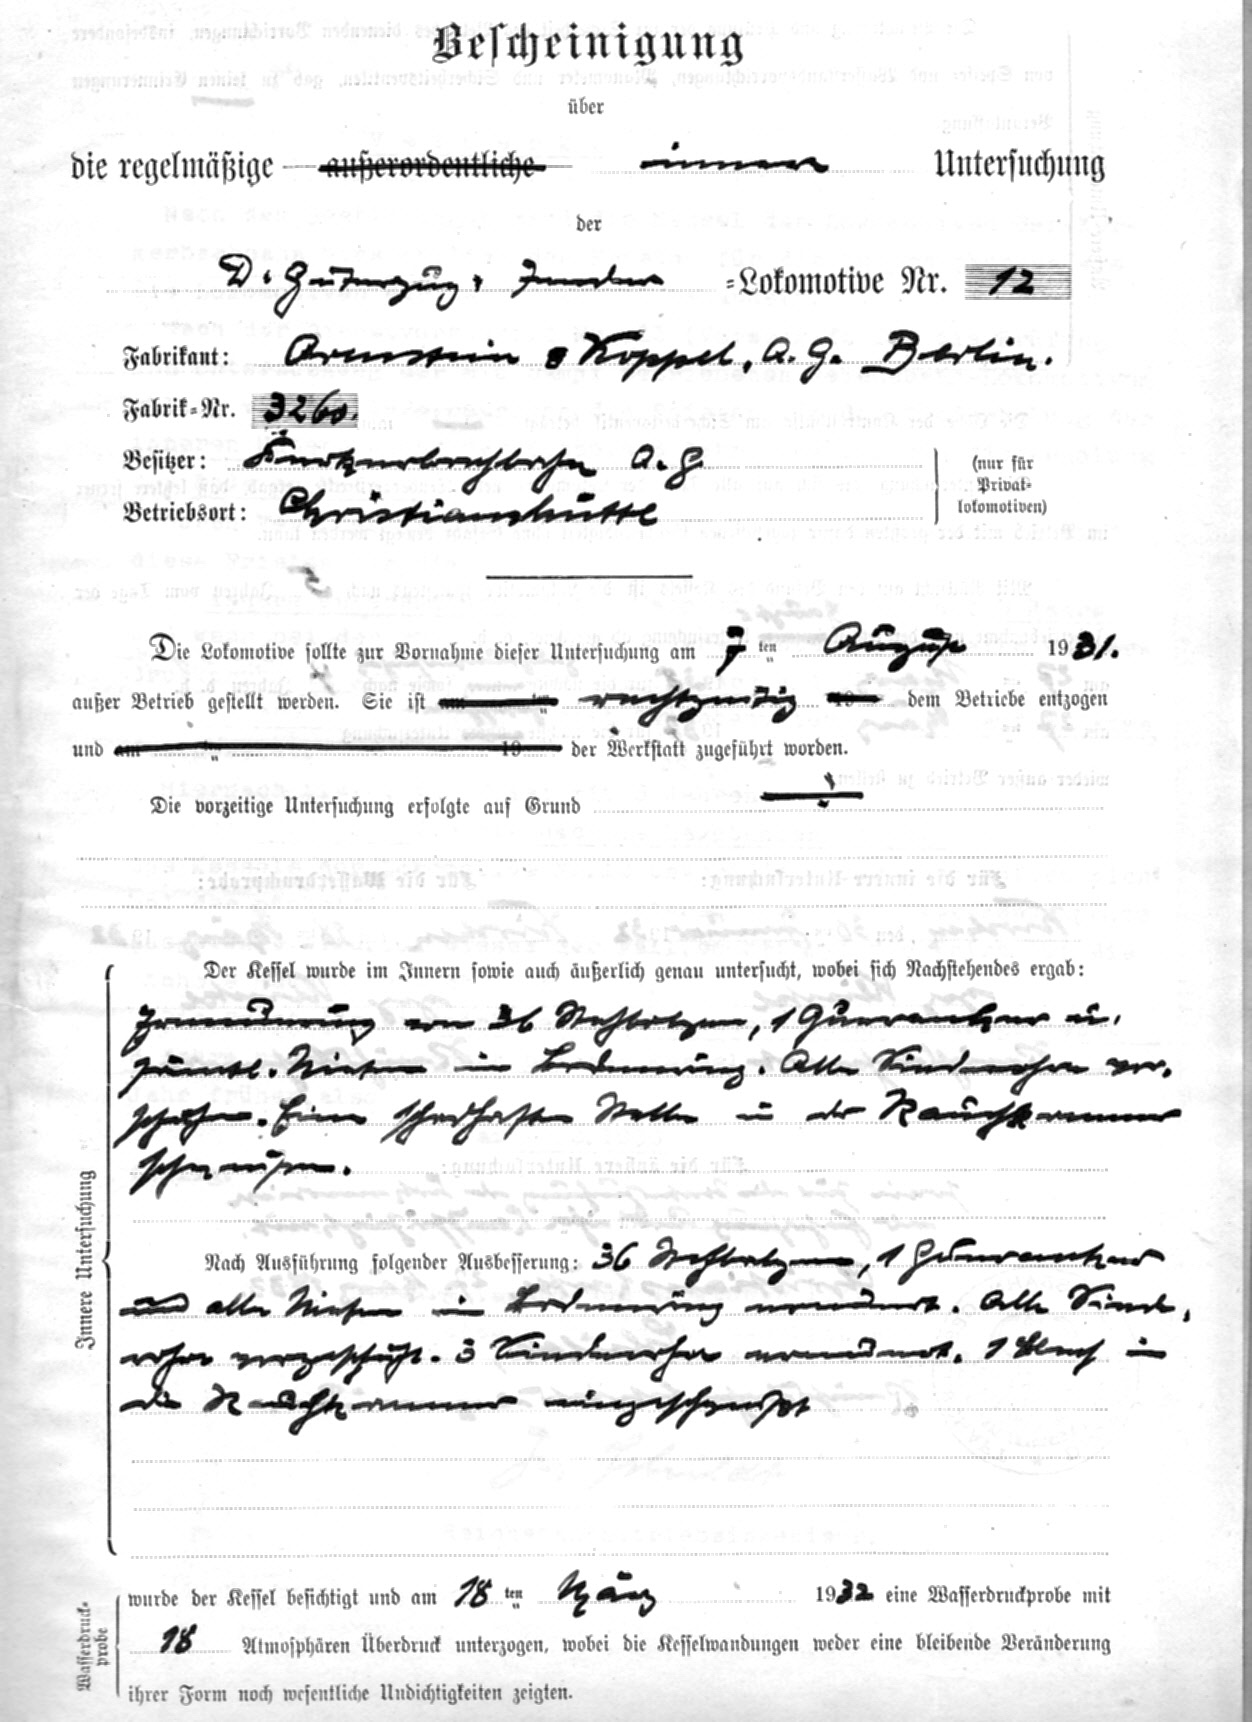 Bescheinigung
über
die regelmäßige außerordentliche innere Untersuchung
der
D. Güterzug- Tender =Lokomotive Nr. 12
Fabrikant: Orenstein & Koppel, A. G. Berlin.
Fabrik=Nr. 3260.
Besitzer: Kerkerbachbahn A. G. (nur für
Privat-
lokomotiven)
Betriebsort: Christianshütte
Die Lokomotive sollte zur Vornahme dieser Untersuchung am 7 ten August 1931.
außer Betrieb gestellt werden. Sie ist am ten rechtzeitig 19 dem Betriebe entzogen
und am 19 der Werkstatt zugeführt worden.
Die vorzeitige Untersuchung erfolgte auf Grund
Innere Untersuchung
Der Kessel wurde im Innern sowie auch äußerlich genau untersucht, wobei sich Nachstehendes ergab:
Erneuerung von 36 Stehbolzen, 1 Queranker u.
sämtl. Nieten im Bodenring. Alle Siederohre vor-
schuhen. Eine schadhafte Stelle in der Rauchkammer
schweißen.
Nach Ausführung folgender Ausbesserung: 36 Stehbolzen, 1 Queranker
und alle Nieten im Bodenring erneuert. Alle Siede-
rohre vorgeschuht. 3 Siederohre erneuert. 1 Blech in
die Rauchkammer eingeschweißt
Wasserdruck-
probe
wurde der Kessel besichtigt und am 18 ten März 1932 eine Wasserdruckprobe mit
18 Atmosphären Überdruck unterzogen, wobei die Kesselwandungen weder eine bleibende Veränderung
ihrer Form noch wesentliche Undichtigkeiten zeigten.